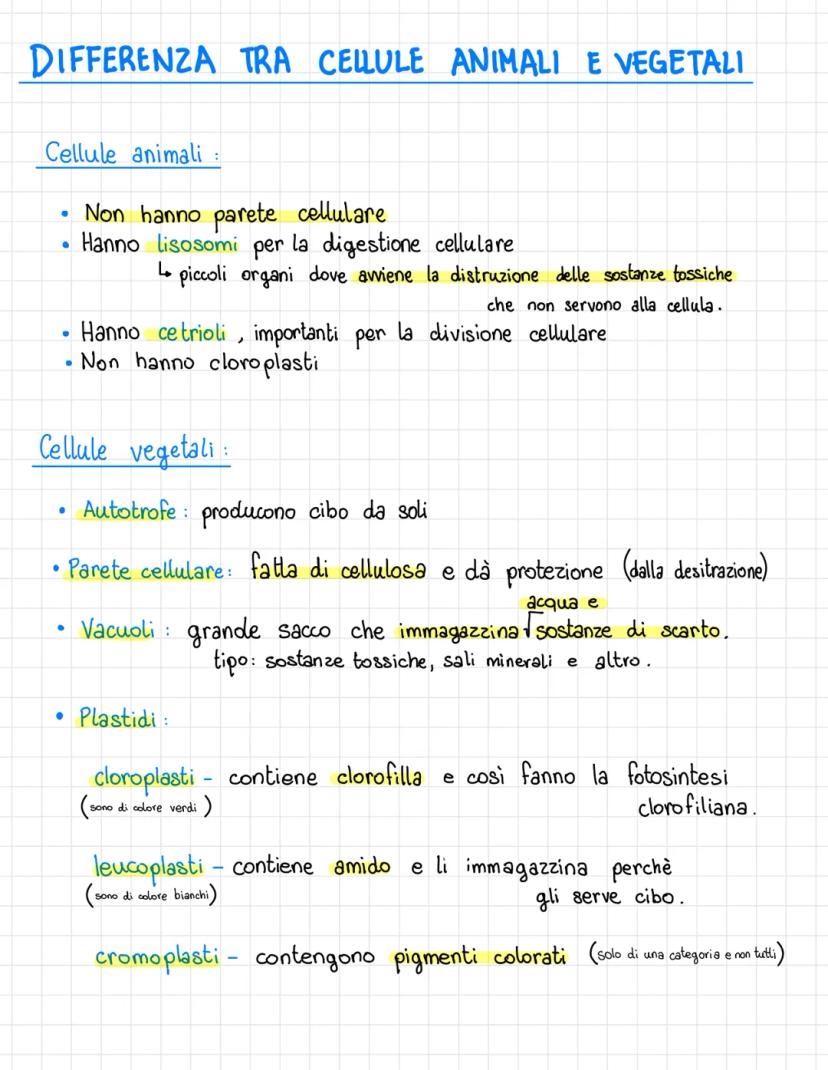 DIFFERENZA TRA CELLULE ANIMALI E VEGETALI
Cellule animali :
• Non hanno parete cellulare
• Hanno lisosomi per la digestione cellulare
↳ piccoli organi dove avviene la distruzione delle sostanze tossiche
che non servono alla cellula.
• Hanno cetrioli , importanti per la divisione cellulare
• Non hanno cloroplasti
Cellule vegetali :
• Autotrofe : producono cibo da soli
• Parete cellulare: fatta di cellulosa e dà protezione (dalla desitrazione)
acqua e
• Vacuoli : grande sacco che immagazzina √ sostanze di scarto.
tipo: sostanze tossiche, sali minerali e altro.
• Plastidi :
cloroplasti - contiene clorofilla e così fanno la fotosintesi
(sono di colore verdi) clorofiliana.
leucoplasti - contiene amido e li immagazzina perchè
(sono di colore bianchi) gli serve cibo.
cromoplasti - contengono pigmenti colorati (solo di una categoria e non tutti)